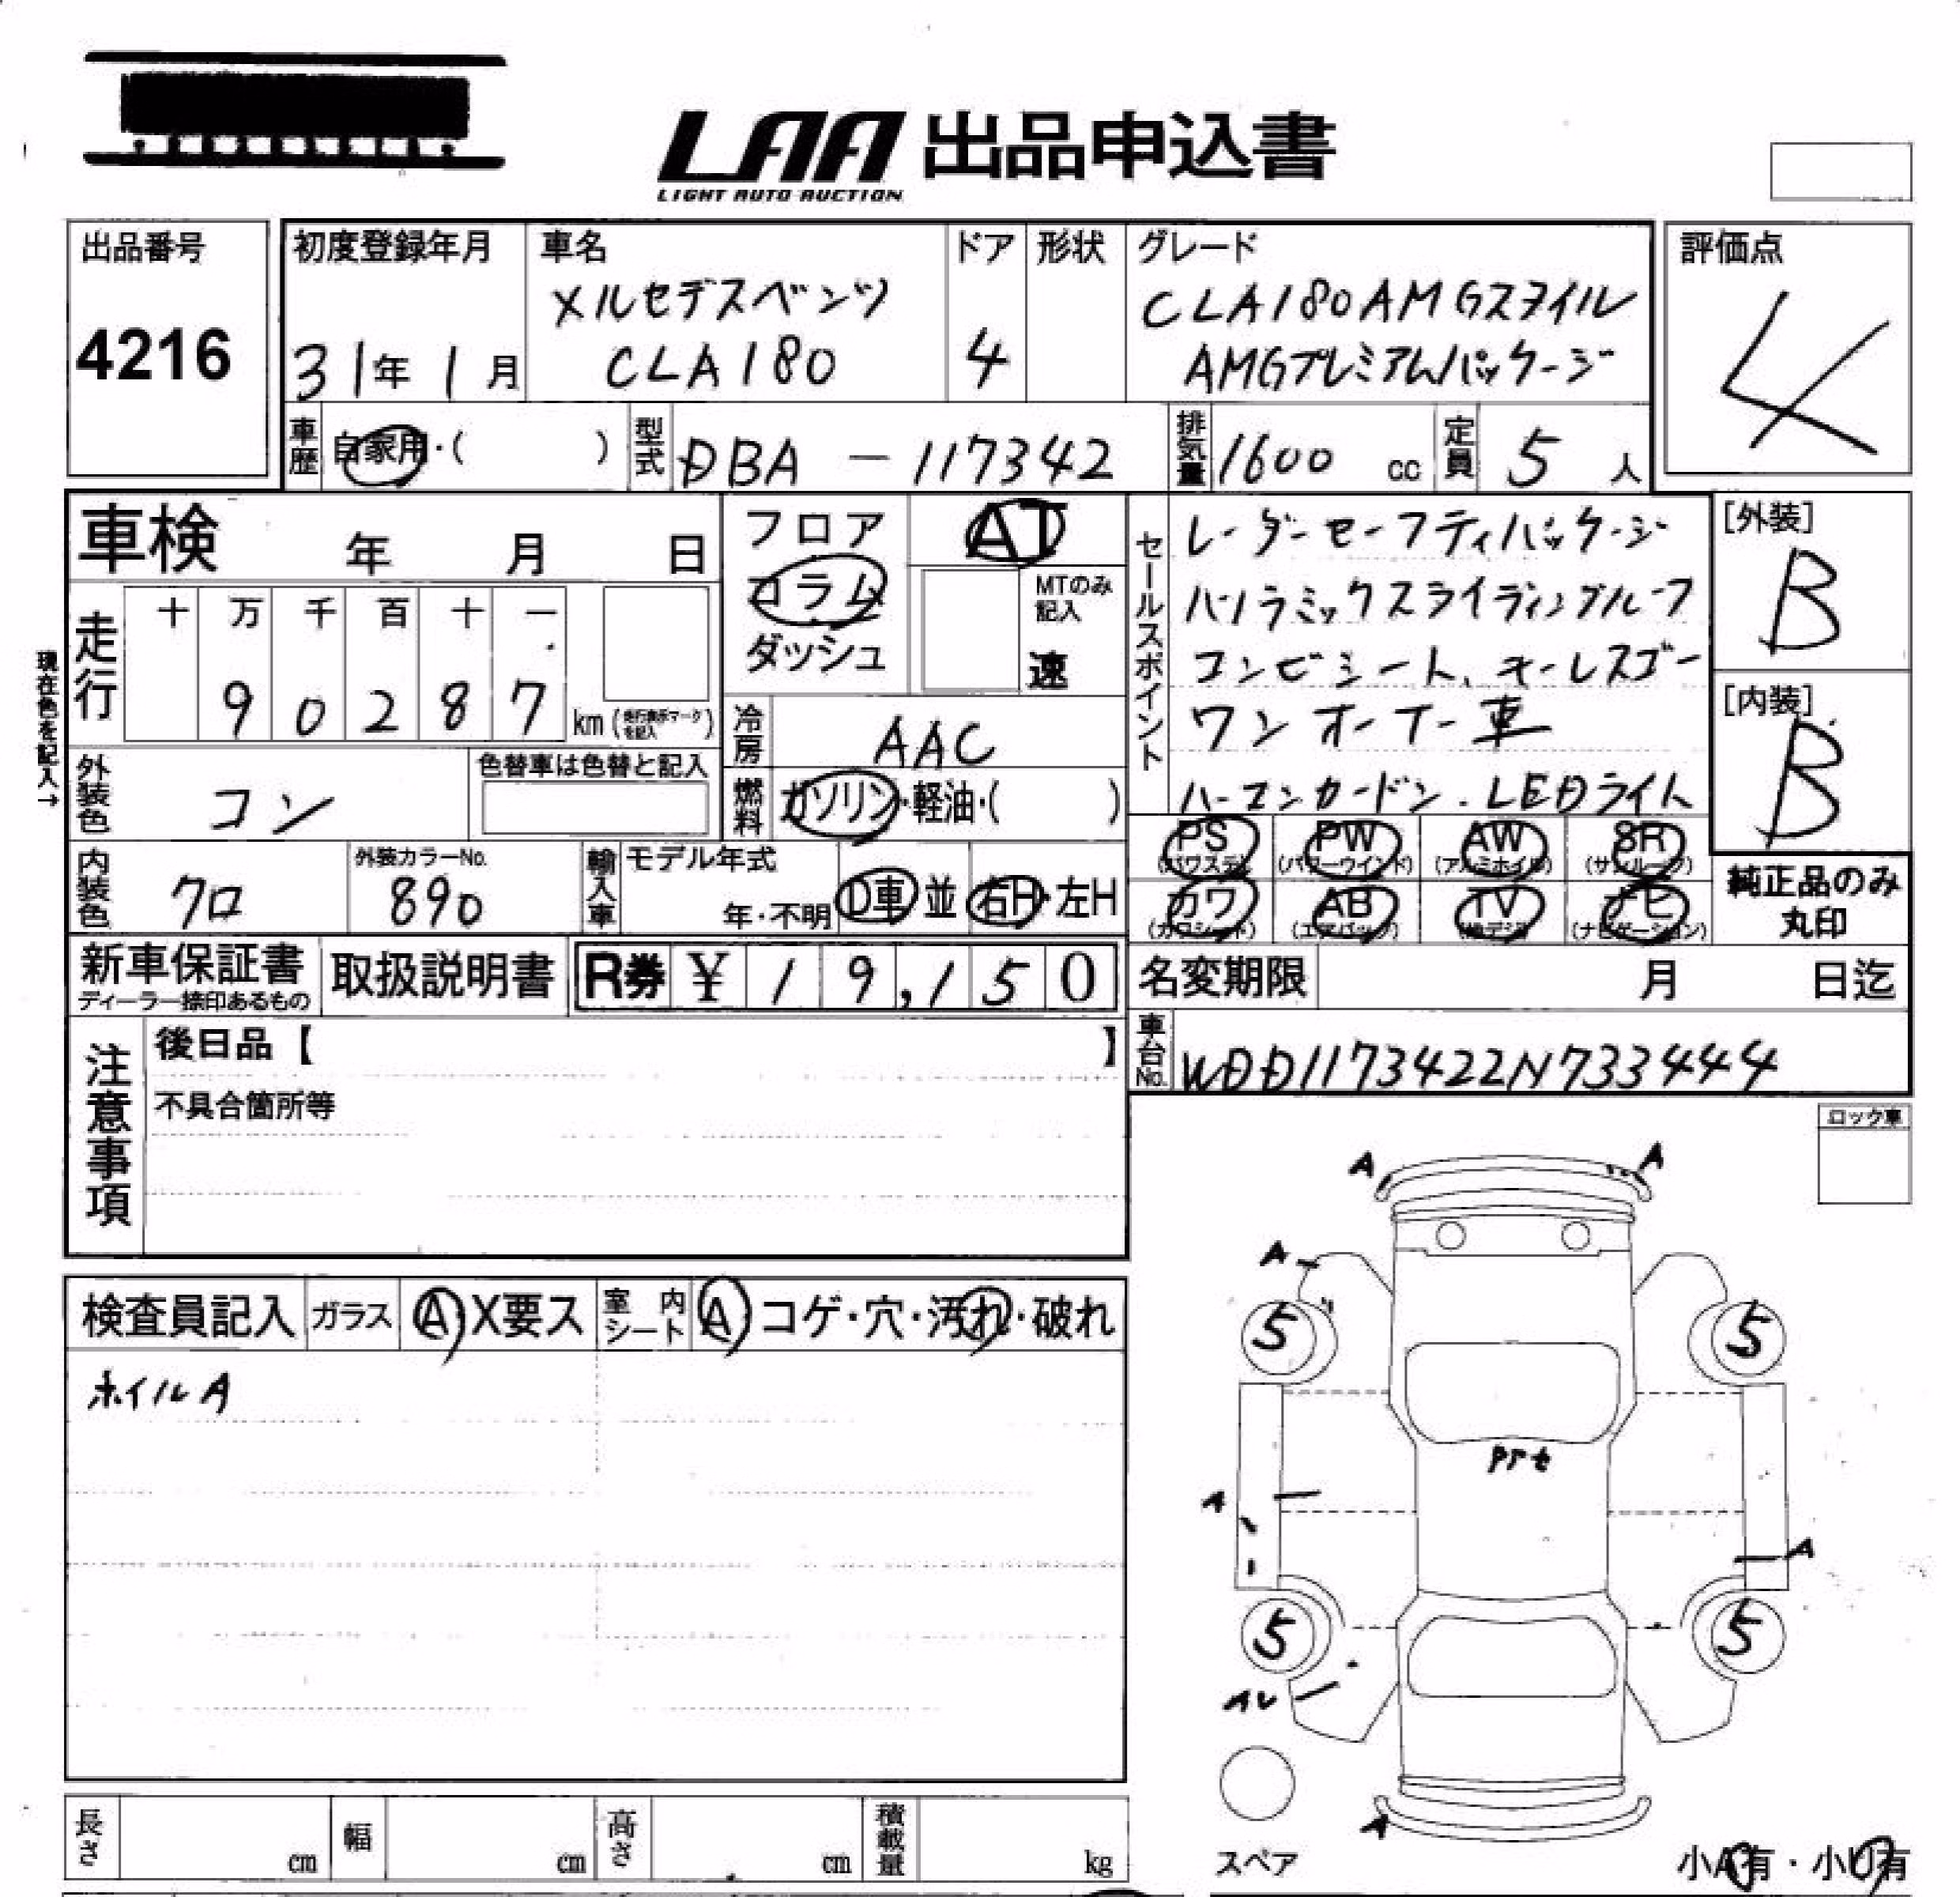 LAA 出品申込書
LIGHT AUTO AUCTION
出品番号
4216
初度登録年月
31年 1月
車名
メルセデスベンツ
CLA180
ドア
4
形状
グレード
CLA180AMGスタイル
AMGプレミアムパッケージ
評価点
4
車歴
自家用・( )
型式
DBA - 117342
排気量
1600 cc
定員
5 人
車検 年 月 日
フロア
コラム
ダッシュ
AT
MTのみ記入
速
セールスポイント
レーダーセーフティパッケージ
パノラミックスライディングルーフ
コンビシート、キーレスゴー
ワンオーナー車
ハーマンカードン.LEDライト
[外装]
B
[内装]
B
現在色を記入→
走行
十 万 千 百 十 一
9 0 2 8 7
km (走行表示マークを記入)
冷房
AAC
外装色
コン
色替車は色替と記入
燃料
ガソリン・軽油・( )
PS (パワステ)
PW (パワーウインド)
AW (アルミホイル)
SR (サンルーフ)
カワ (カワシート)
AB (エアバック)
TV (地デジ)
ナビ (ナビゲーション)
純正品のみ
丸印
内装色
クロ
外装カラーNo.
890
輸入車
モデル年式
年・不明
D車 並
右H・左H
新車保証書
ディーラー捺印あるもの
取扱説明書
R券 ¥ 19,150
名変期限 月 日迄
車台No.
WDD1173422N733444
注意事項
後日品【 】
不具合箇所等
ロック車
検査員記入
ガラス
A X要ス
室内シート
A コゲ・穴・汚れ・破れ
ホイルA
A
A
A
5
5
A
A
5
5
A
スペア
小A有・小U有
長さ cm
幅 cm
高さ cm
積載量 kg